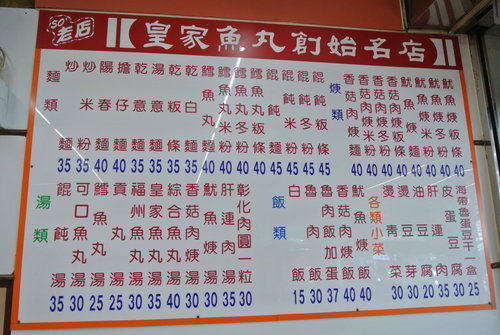 SO 老店
皇家魚丸創始名店
麵類
炒麵 35
炒米粉 35
陽春麵 40
擔仔麵 40
乾意麵 35
湯意麵 35
乾板條 35
乾白麵 35
鱈魚丸麵 40
鱈魚丸米粉 40
鱈魚丸冬粉 40
鱈魚丸板條 40
餛飩麵 45
餛飩米粉 45
餛飩冬粉 45
餛飩板條 45
焿類
香菇肉焿麵 40
香菇肉焿米粉 40
香菇肉焿冬粉 40
香菇肉焿板條 40
魷魚焿麵 40
魷魚焿米粉 40
魷魚焿冬粉 40
魷魚焿板條 40
湯類
餛飩湯 35
可口魚丸湯 30
鱈魚丸湯 25
貢丸湯 25
福州丸湯 30
皇家魚丸湯 35
綜合魚丸湯 40
香菇肉焿湯 30
魷魚焿湯 30
肝連肉湯 35
彰化肉圓一粒 30
飯類
白飯 15
魯肉飯 30
魯肉飯加蛋 37
香菇肉焿飯 40
魷魚焿飯 40
各類小菜
燙青菜 30
燙豆芽 30
油豆腐 20
肝連肉 35
皮蛋豆腐 25
海帶魯蛋豆干一盒 30